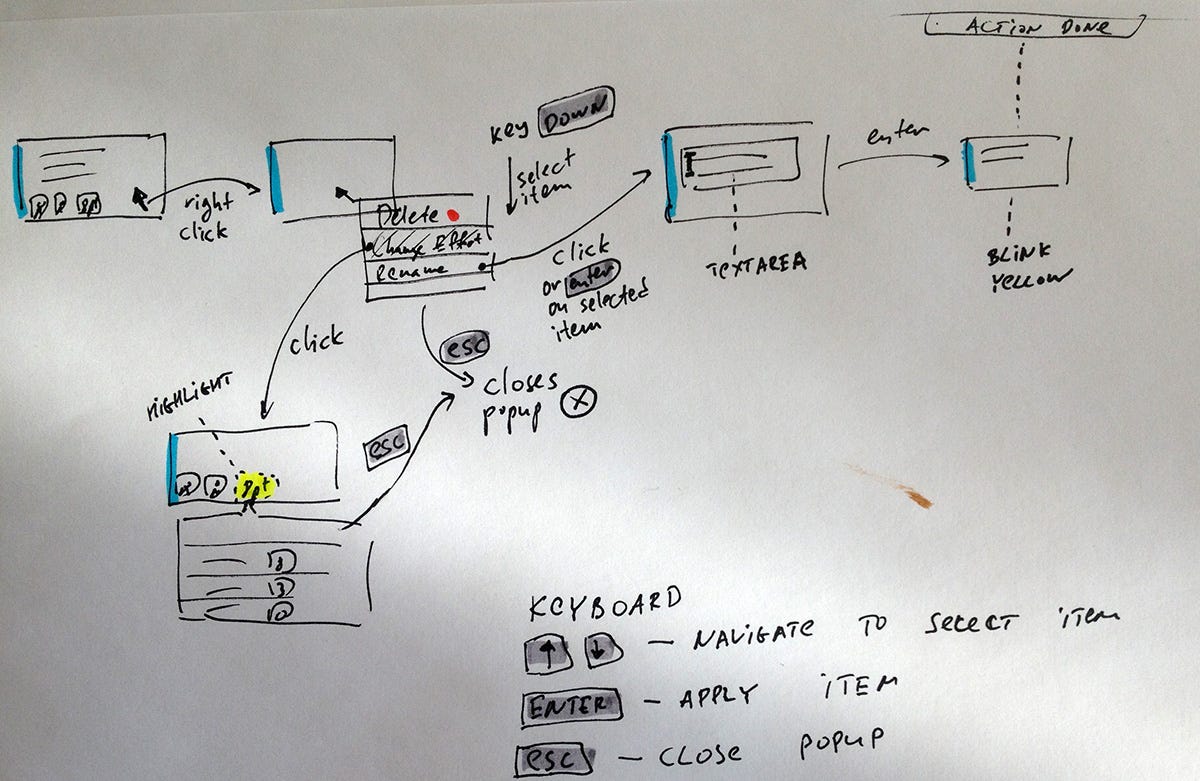 ACTION DONE
KEY DOWN
select
item
enter
right
click
Delete
Change Effort
Rename
click
or enter
on selected
item
TEXTAREA
BLINK
YELLOW
click
esc
closes
popup X
HIGHLIGHT
esc
KEYBOARD
↑ ↓ — NAVIGATE TO SELECT ITEM
ENTER — APPLY ITEM
esc — CLOSE POPUP